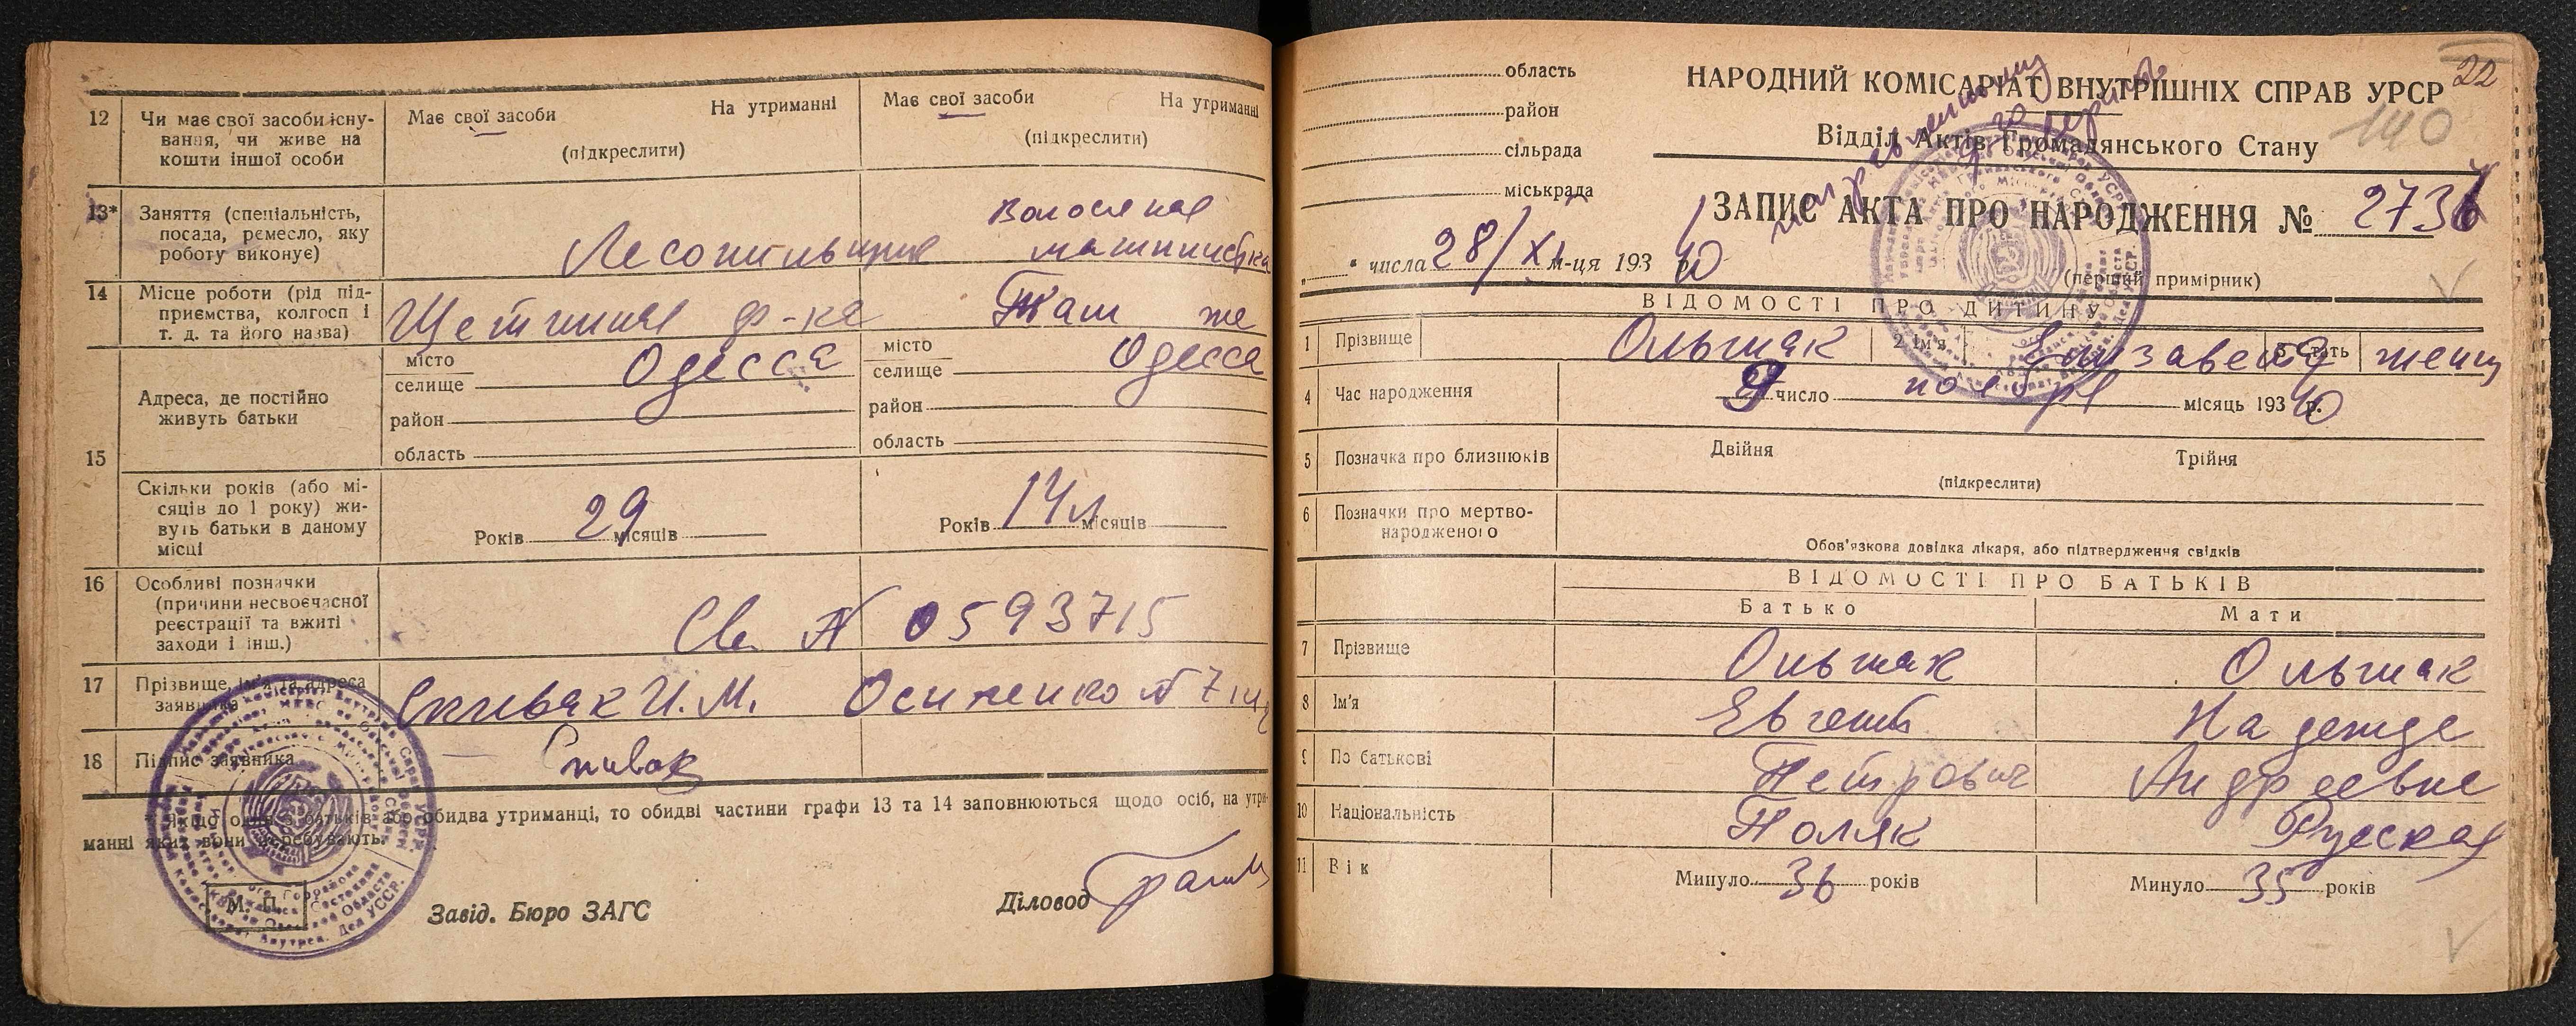 12 Чи має свої засоби існу-
вання, чи живе на
кошти іншої особи
Має свої засоби На утриманні
(підкреслити)
Має свої засоби На утриманні
(підкреслити)
13* Заняття (спеціальність,
посада, ремесло, яку
роботу виконує)
машинистка
14 Місце роботи (рід під-
приємства, колгосп і
т. д. та його назва)
Щетинная ф-ка
Там же
15 Адреса, де постійно
живуть батьки
місто Одесса
селище
район
область
місто Одесса
селище
район
область
Скільки років (або мі-
сяців до 1 року) жи-
вуть батьки в даному
місці
Років 29 місяців
Років 14 л місяців
16 Особливі позначки
(причини несвоєчасної
реєстрації та вжиті
заходи і інш.)
Св. N 0593715
17 Прізвище, ім'я та адреса
заявника
Спивак И. М. Осипенко N 7
18 Підпис заявника
Спивак
* Якщо один з батьків або обидва утриманці, то обидві частини графи 13 та 14 заповнюються щодо осіб, на утри-
манні яких вони перебувають.
М. П.
Завід. Бюро ЗАГС
Діловод
22
140
область
район
сільрада
міськрада
НАРОДНИЙ КОМІСАРІАТ ВНУТРІШНІХ СПРАВ УРСР
Відділ Актів Громадянського Стану
ЗАПИС АКТА ПРО НАРОДЖЕННЯ № 273
„ “ числа 28/XI м-ця 193 40 р.
(перший примірник)
ВІДОМОСТІ ПРО ДИТИНУ
1 Прізвище Ольшак 2 Ім'я Елизавета 3 Стать женщ
4 Час народження 9 число ноября місяць 193 40 р.
5 Позначка про близнюків Двійня Трійня
(підкреслити)
6 Позначки про мертво-
народженого
Обов'язкова довідка лікаря, або підтвердження свідків
ВІДОМОСТІ ПРО БАТЬКІВ
Батько Мати
7 Прізвище Ольшак Ольшак
8 Ім'я Евгений Надежда
9 По батькові Петрович Андреевна
10 Національність Поляк Русская
11 Вік Минуло 36 років Минуло 35 років